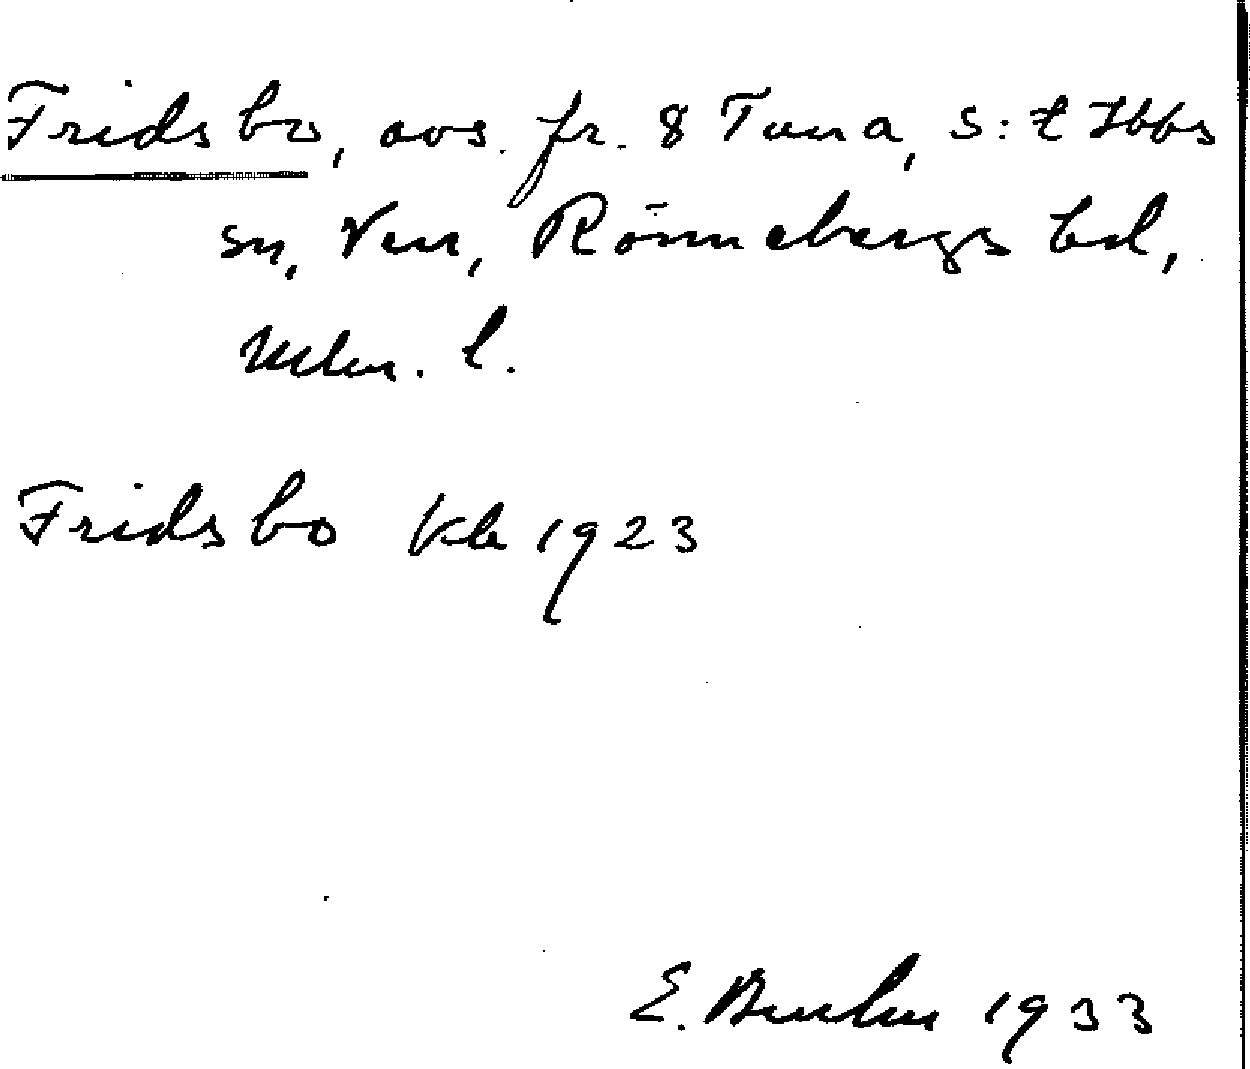 Fridsbo, avs. fr. 8 Tuna, S:t Ibbs
sn, Ven, Rönnebergs hd,
Mlm. l.
Fridsbo Kb 1923
E. 1933